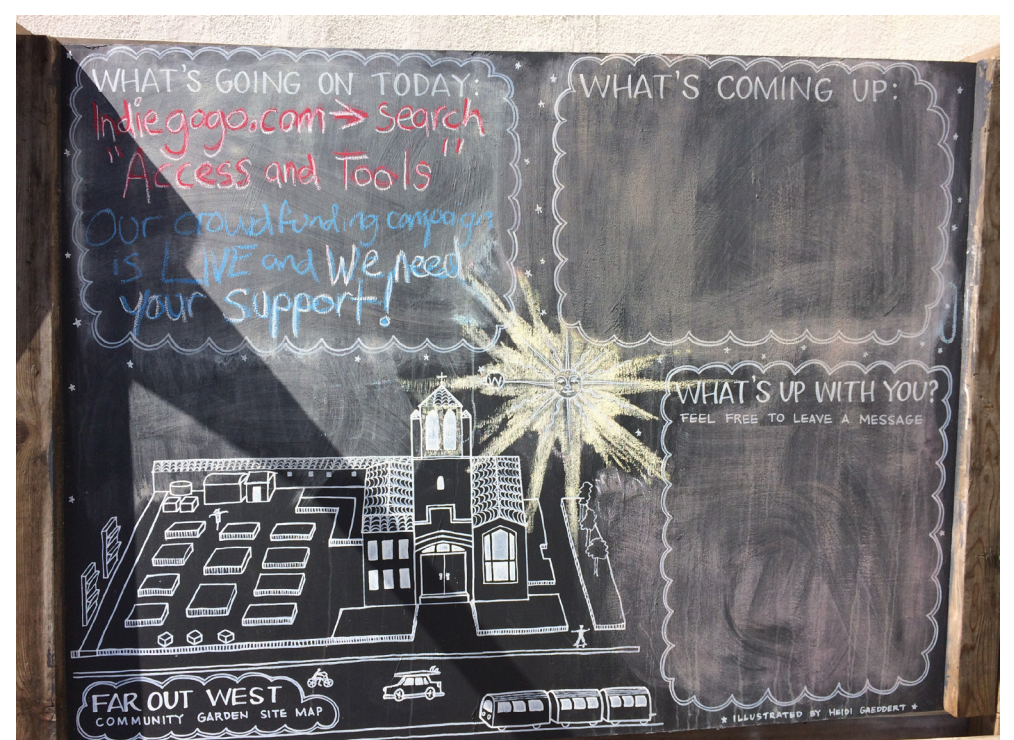 WHAT'S GOING ON TODAY:
Indiegogo.com → Search
"Access and Tools"
Our crowdfunding campaign
is LIVE and We need
your Support!
WHAT'S COMING UP:
W
WHAT'S UP WITH YOU?
FEEL FREE TO LEAVE A MESSAGE
FAR OUT WEST
COMMUNITY GARDEN SITE MAP
★ ILLUSTRATED BY HEIDI GAEDDERT ★